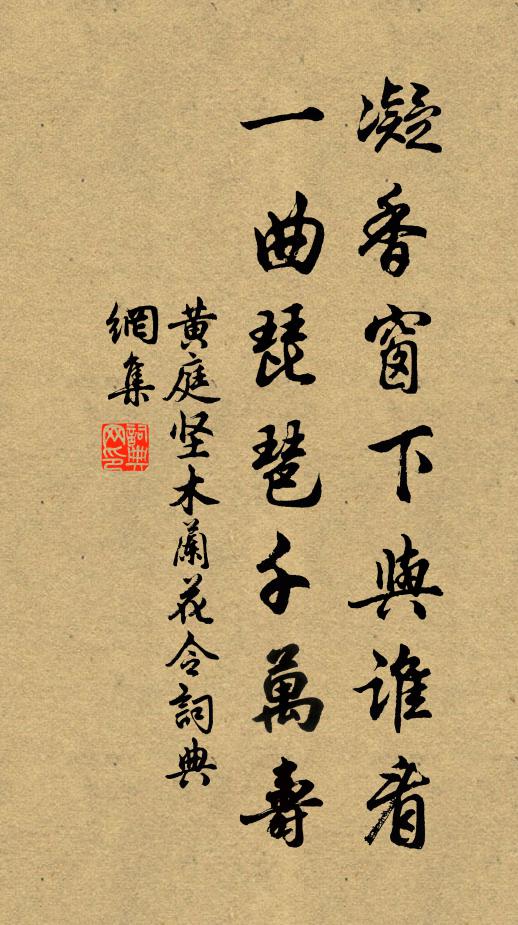 凝香窗下與誰看
一曲琵琶千萬壽
黄庭坚木蘭花令詞典
網集
詞典
网印